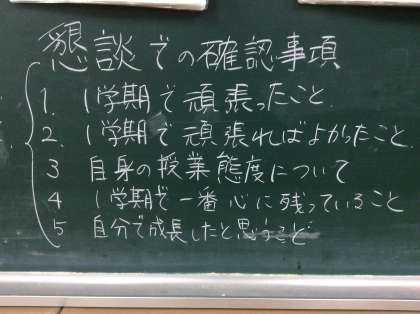 懇談での確認事項
1. 1学期で頑張ったこと.
2. 1学期で頑張ればよかったこと.
3 自身の授業態度について
4 1学期で一番心に残っていること
5 自分で成長したと思うこと